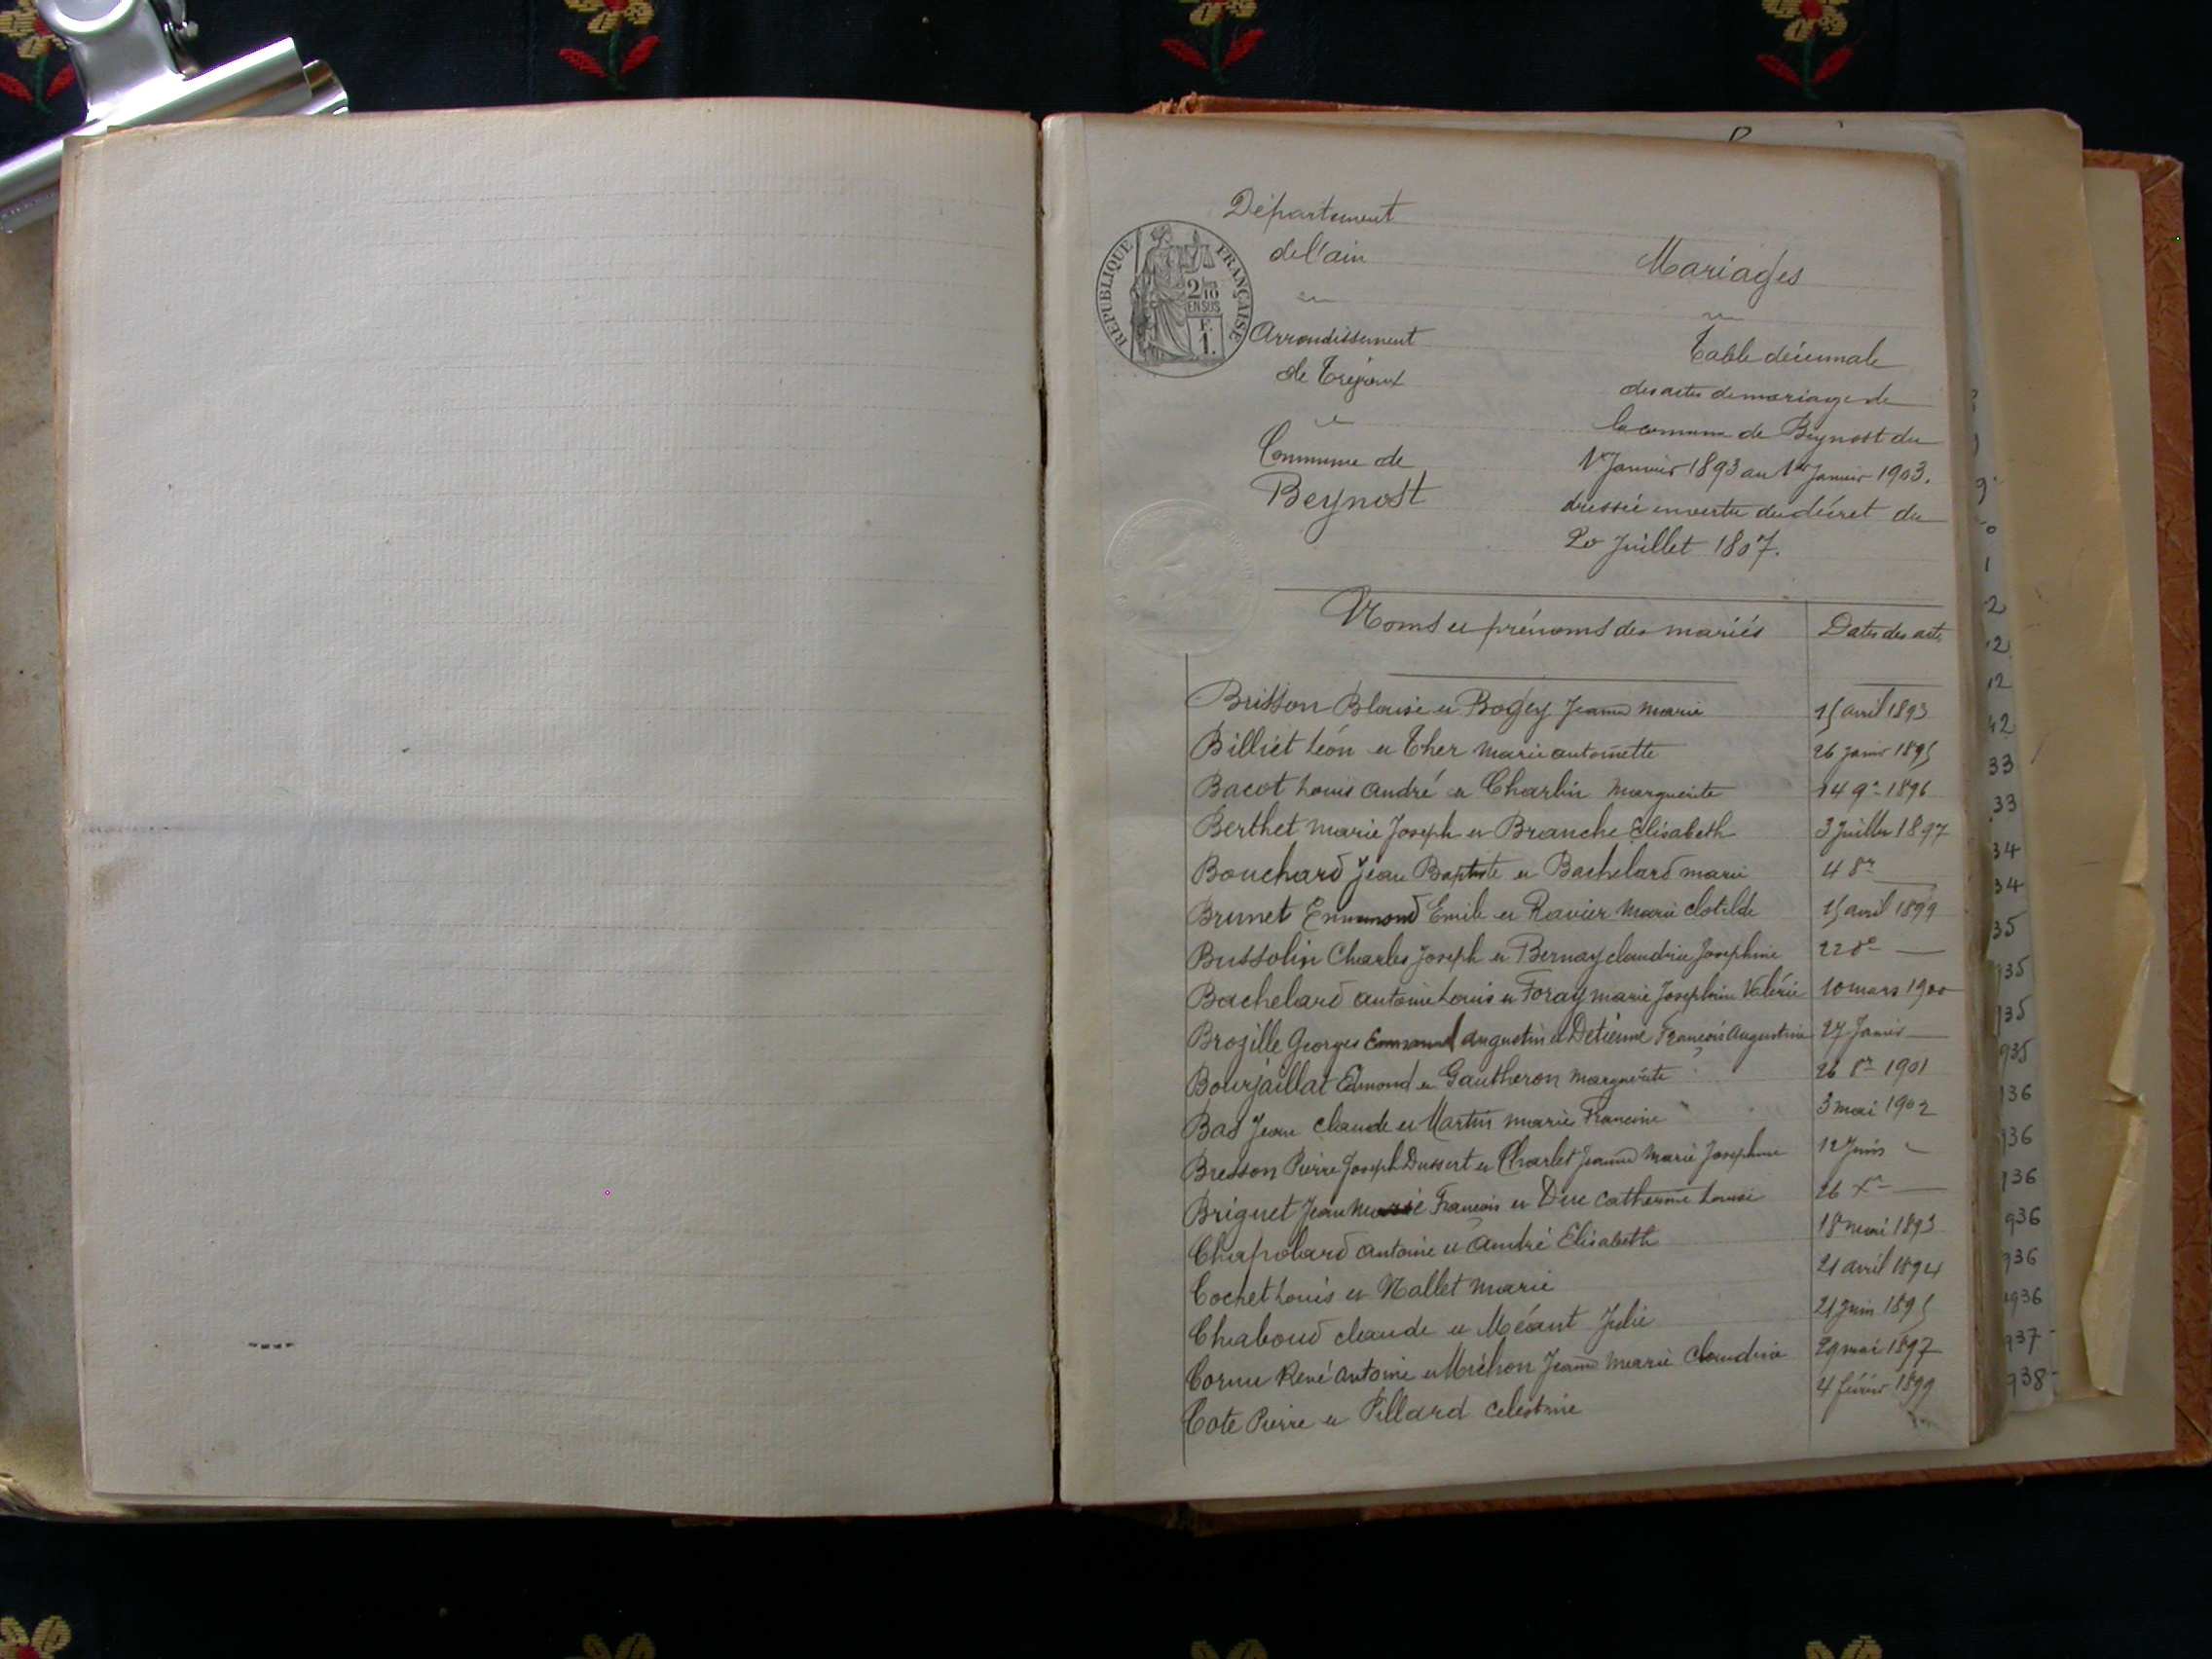 Département
de l'ain
Arrondissement
de Trévoux
Commune de
Beynost
REPUBLIQUE FRANÇAISE
2/10
EN SUS
F.
1.
Mariages
Table décennale
des actes de mariage de
la commune de Beynost du
1er Janvier 1893 au 1er Janvier 1903.
dressée en vertu du décret du
20 Juillet 1807.
Noms et prénoms des mariés Dates des actes
Brisson Blaise et Bogey Jeanne Marie 15 avril 1893
Billiet Léon et Ther Marie antoinette 26 Janvr 1895
Bacot Louis André et Charlin Marguerite 14 9re 1896
Berthet Marie Joseph et Branche Elisabeth 3 Juillet 1897
Bouchard Jean Baptiste et Bachelard marie 4 8re —
Brunet Emile et Ravier Marie Clotilde 15 avril 1899
Bussolin Charles Joseph et Bernay claudine Josephine 22 8e —
Bachelard antoine Louis et Foray marie Josephine Valérie 10 mars 1900
Brogille Georges augustin et Detienne François Augustine 27 Janvier —
Bourjaillat Edmond et Gautheron Marguerite 26 8re 1901
Bas Jean claude et Martin marie Francine 3 mai 1902
Bresson Pierre Joseph Dussert et Charlet Jeanne Marie Josephine 12 Juin —
Briguet Jean Marie François et Duc Catherine Louise 26 Xre —
Chapolard antoine et André Elisabeth 18 mai 1893
Cochet Louis et Nallet Marie 21 avril 1894
Chaboud claude et Méant Julie 21 Juin 1895
Cornu René Antoine et Michon Jeanne Marie Claudine 29 mai 1897
Cote Pierre et Pillard Celestine 4 février 1899
33
33
34
34
35
35
35
935
936
936
936
936
936
936
937
938